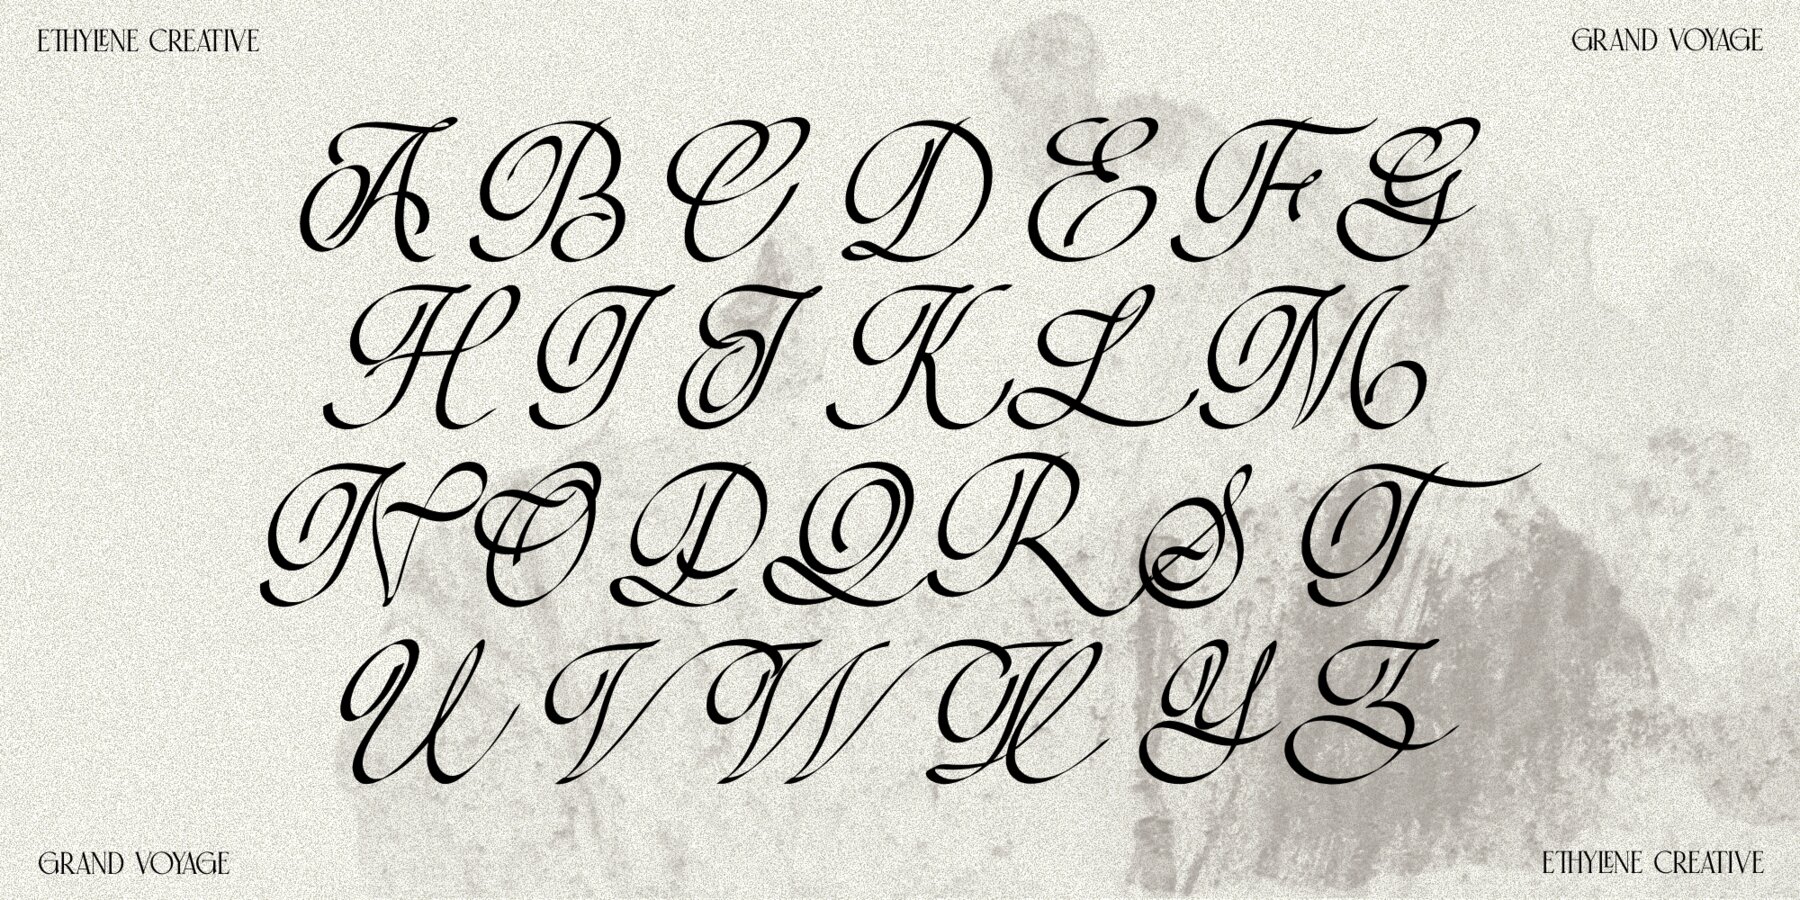 ETHYLENE CREATIVE
GRAND VOYAGE
A B C D E F G
H I J K L M
N O P Q R S T
U V W X Y Z
GRAND VOYAGE
ETHYLENE CREATIVE